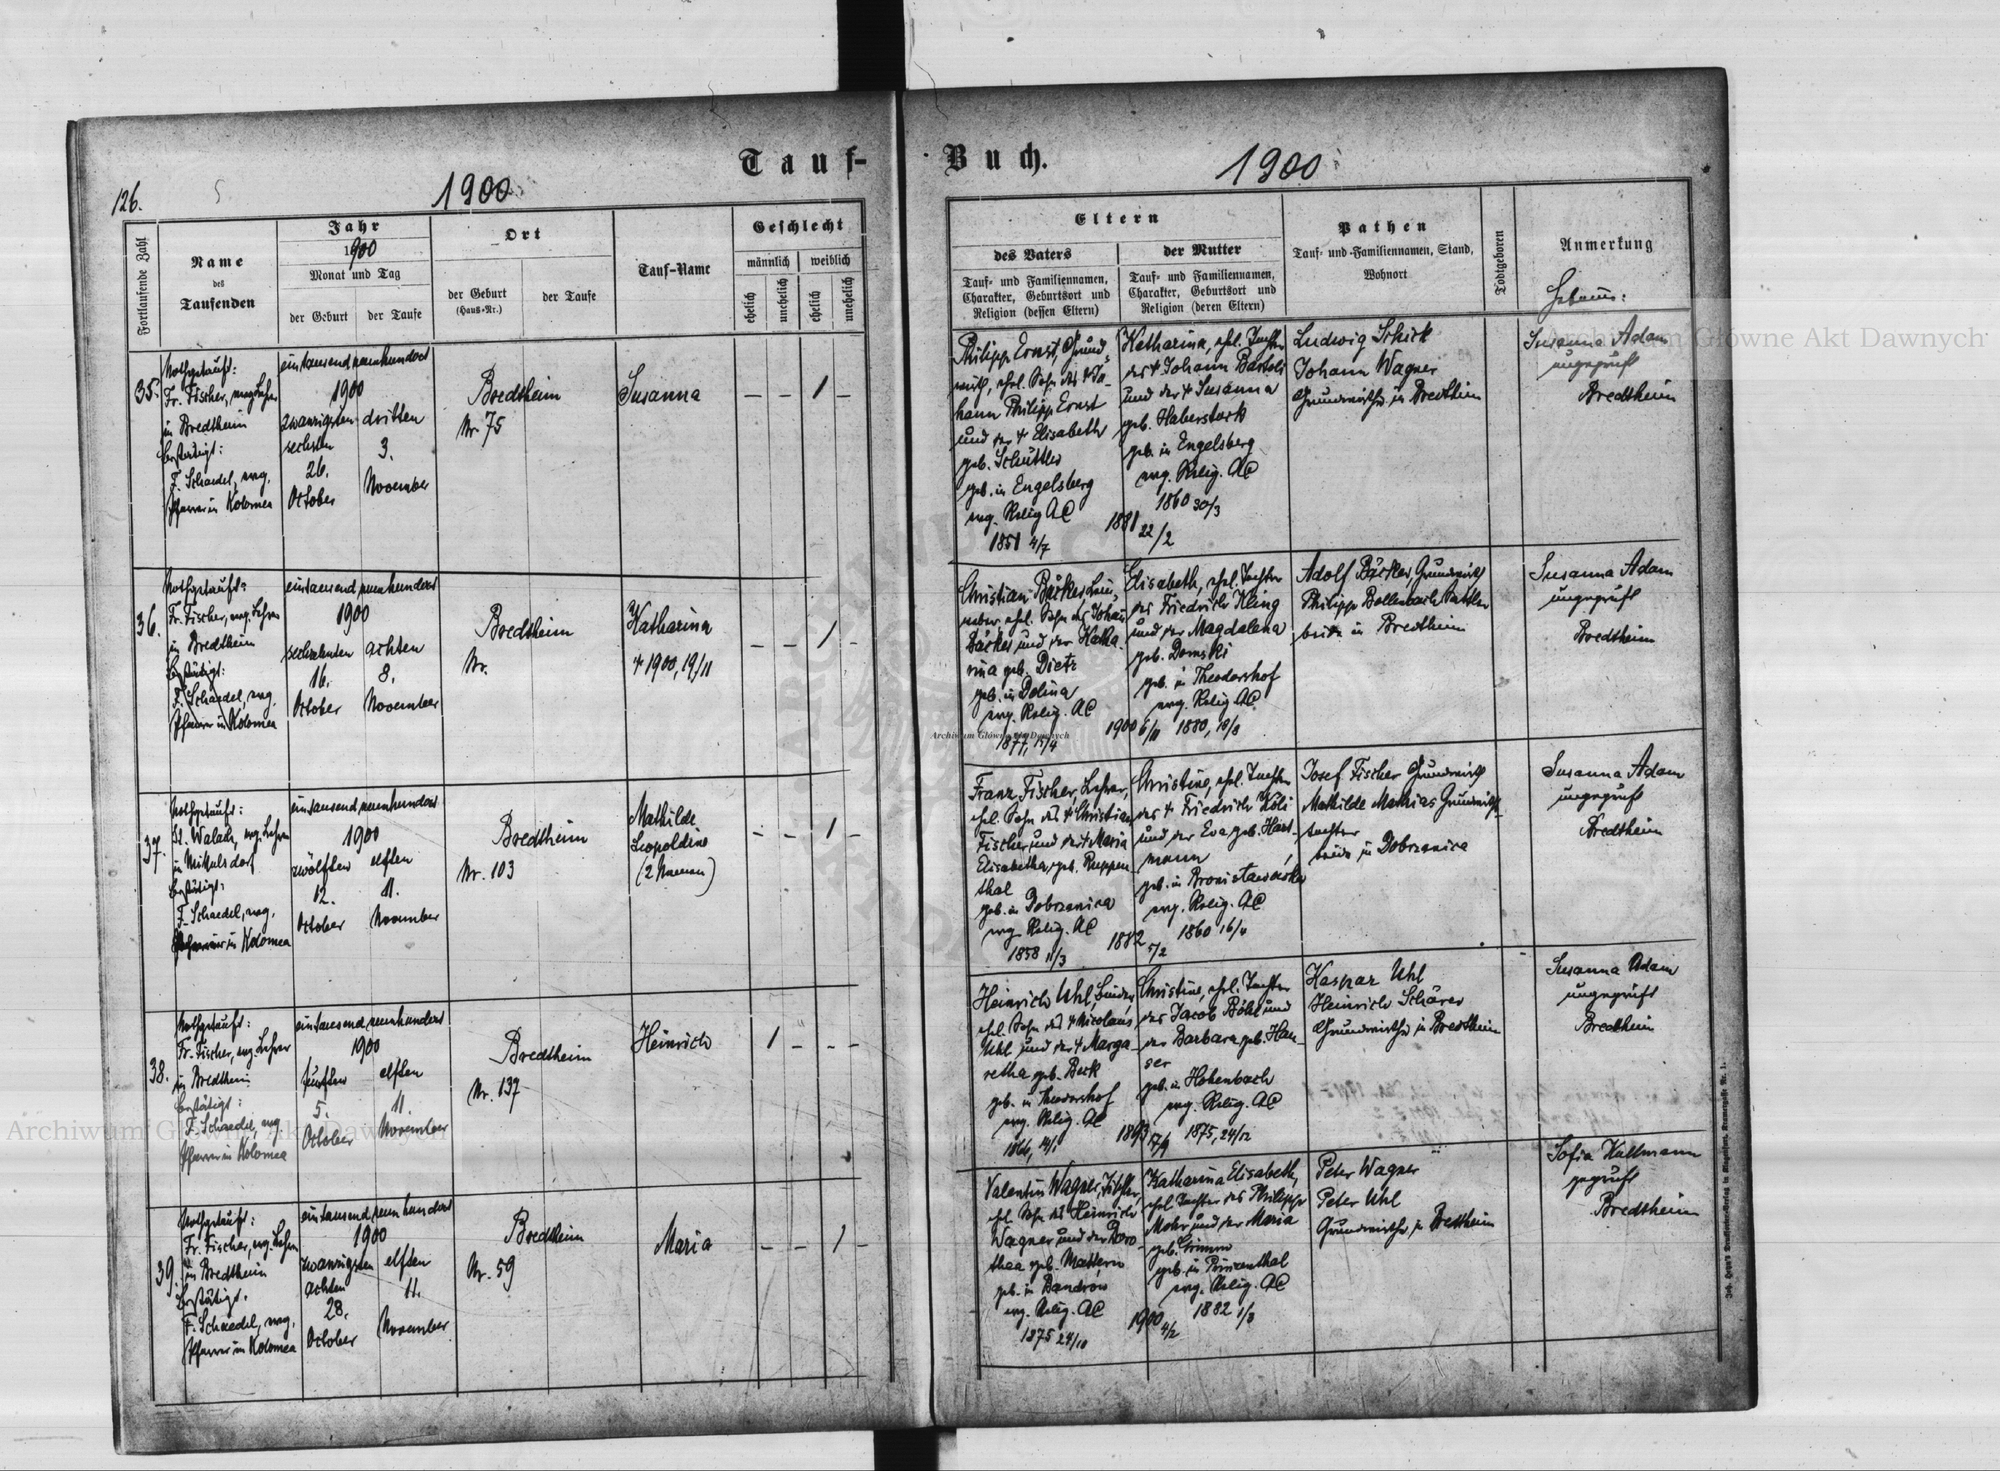 Tauf-
Buch.
126.
1900
1900
Fortlaufende Zahl
Name
des
Taufenden
Jahr
1900
Monat und Tag
der Geburt
der Taufe
Ort
der Geburt
(Haus-Nr.)
der Taufe
Tauf-Name
Geschlecht
männlich
weiblich
ehelich
unehelich
ehelich
unehelich
Eltern
des Vaters
Tauf- und Familiennamen,
Charakter, Geburtsort und
Religion (dessen Eltern)
der Mutter
Tauf- und Familiennamen,
Charakter, Geburtsort und
Religion (deren Eltern)
Pathen
Tauf- und Familiennamen, Stand,
Wohnort
Todtgeboren
Anmerkung
Hebamme:
35.
Nothgetauft:
Fr. Fischer, evg. Lehrer
in Bredtheim
bestätigt:
F. Schaedel, evg.
Pfarrer in Kolomea
eintausend neunhundert
1900
zwanzigsten
sechsten
26.
October
dritten
3.
November
Bredtheim
Nr. 75
Susanna
– – 1 –
Philipp Ernst, Grund-
wirth, ehel. Sohn des † Jo-
hann Philipp Ernst
und der † Elisabeth
geb. Schüttler
geb. in Engelsberg
evg. Relig. AC
1851 4/7
1881 22/2
Katharina, ehel. Tochter
des † Johann Bartols
und der † Susanna
geb. Haberstock
geb. in Engelsberg
evg. Relig. AC
1860 30/3
Ludwig Schick
Johann Wagner
Grundwirthe in Bredtheim
Susanna Adam
ungeprüft
Bredtheim
36.
Nothgetauft:
Fr. Fischer, evg. Lehrer
in Bredtheim
bestätigt:
F. Schaedel, evg.
Pfarrer in Kolomea
eintausend neunhundert
1900
sechzehnten
16.
October
achten
8.
November
Bredtheim
Nr.
Katharina
† 1900, 19/11
– – 1 –
Christian Bäcker,
ehel. Sohn des Johann
Bäcker und der Katha-
rina geb. Dietz
geb. in Dolina
evg. Relig. AC
1877, 15/4
1900 6/11
Elisabeth, ehel. Tochter
des Friedrich Kling
und der Magdalena
geb. Domski
geb. in Theodorshof
evg. Relig. AC
1880, 18/8
Adolf Bäcker, Grundwirth
Philipp Bollenbach Sattler
beide in Bredtheim
Susanna Adam
ungeprüft
Bredtheim
37.
Nothgetauft:
St. Walach, evg. Lehrer
in Mikulsdorf
bestätigt:
F. Schaedel, evg.
Pfarrer in Kolomea
eintausend neunhundert
1900
zwölften
12.
October
elften
11.
November
Bredtheim
Nr. 103
Mathilde
Leopoldine
(2 Namen)
– – 1 –
Franz Fischer, Lehrer,
ehel. Sohn des † Christian
Fischer und der † Maria
Elisabetha, geb. Ruppen-
thal
geb. in Dobrzanica
evg. Relig. AC
1858 11/3
1882 5/2
Christine, ehel. Tochter
des † Friedrich Köli
und der Eva geb. Hart-
mann
geb. in Bronisławówka
evg. Relig. AC
1860 16/4
Josef Fischer Grundwirth
Mathilde Mathias Grundwirths-
tochter
beide in Dobrzanica
Susanna Adam
ungeprüft
Bredtheim
38.
Nothgetauft:
Fr. Fischer, evg. Lehrer
in Bredtheim
bestätigt:
F. Schaedel, evg.
Pfarrer in Kolomea
eintausend neunhundert
1900
fünften
5.
October
elften
11.
November
Bredtheim
Nr. 137
Heinrich
1 – – –
Heinrich Uhl, Binder
ehel. Sohn des † Nicolaus
Uhl und der † Marga-
retha geb. Beck
geb. in Theodorshof
evg. Relig. AC
1866, 14/1
1893 17/9
Christine, ehel. Tochter
des Jacob Böhl und
der Barbara geb. Hau-
ser
geb. in Hohenbach
evg. Relig. AC
1875, 24/12
Kaspar Uhl
Heinrich Schärer
Grundwirthe in Bredtheim
Susanna Adam
ungeprüft
Bredtheim
39.
Nothgetauft:
Fr. Fischer, evg. Lehrer
in Bredtheim
bestätigt:
F. Schaedel, evg.
Pfarrer in Kolomea
eintausend neunhundert
1900
zwanzigsten
achten
28.
October
elften
11.
November
Bredtheim
Nr. 59
Maria
– – 1 –
Valentin Wagner,
ehel. Sohn des Heinrich
Wagner und der Doro-
thea geb. Mattern
geb. in Bandrów
evg. Relig. AC
1875 24/10
1900 4/2
Katharina Elisabeth,
ehel. Tochter des Philipp
Mohr und der Maria
geb. Grimm
geb. in Prinzenthal
evg. Relig. AC
1882 1/3
Peter Wagner
Peter Uhl
Grundwirthe in Bredtheim
Sofia Kullmann
geprüft
Bredtheim
Archiwum Główne Akt Dawnych
Archiwum Główne Akt Dawnych
Archiwum Główne Akt Dawnych